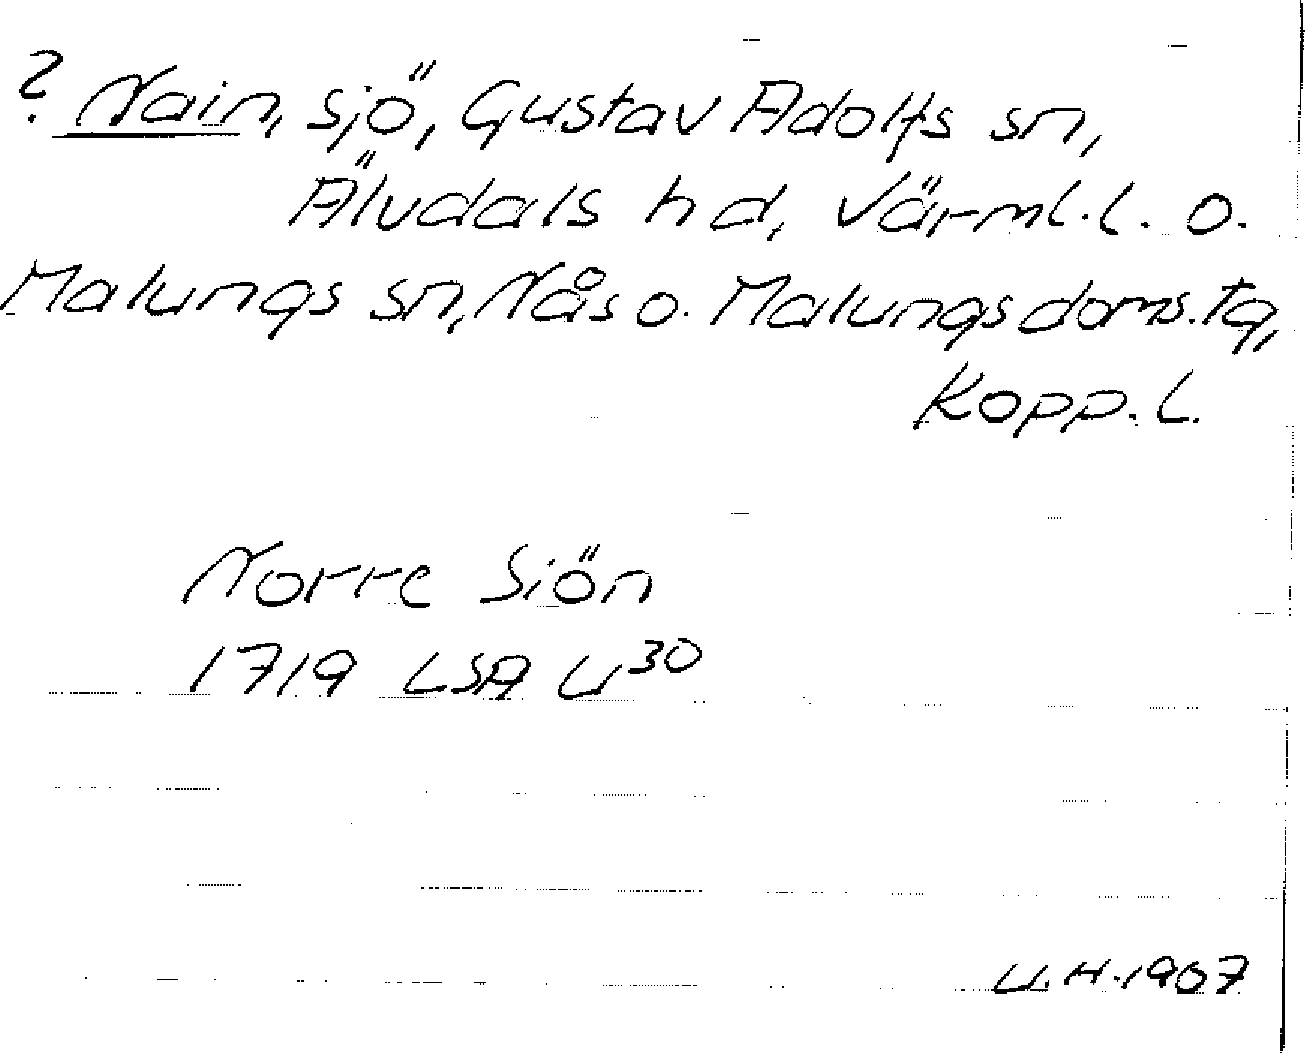 ? Nain, sjö, Gustav Adolfs sn,
Älvdals hd, Värml. l. o.
Malungs sn, Nås o. Malungs doms. tg,
Kopp. l.
Norre Siön
1719 LSA U³⁰
U.H. 1907